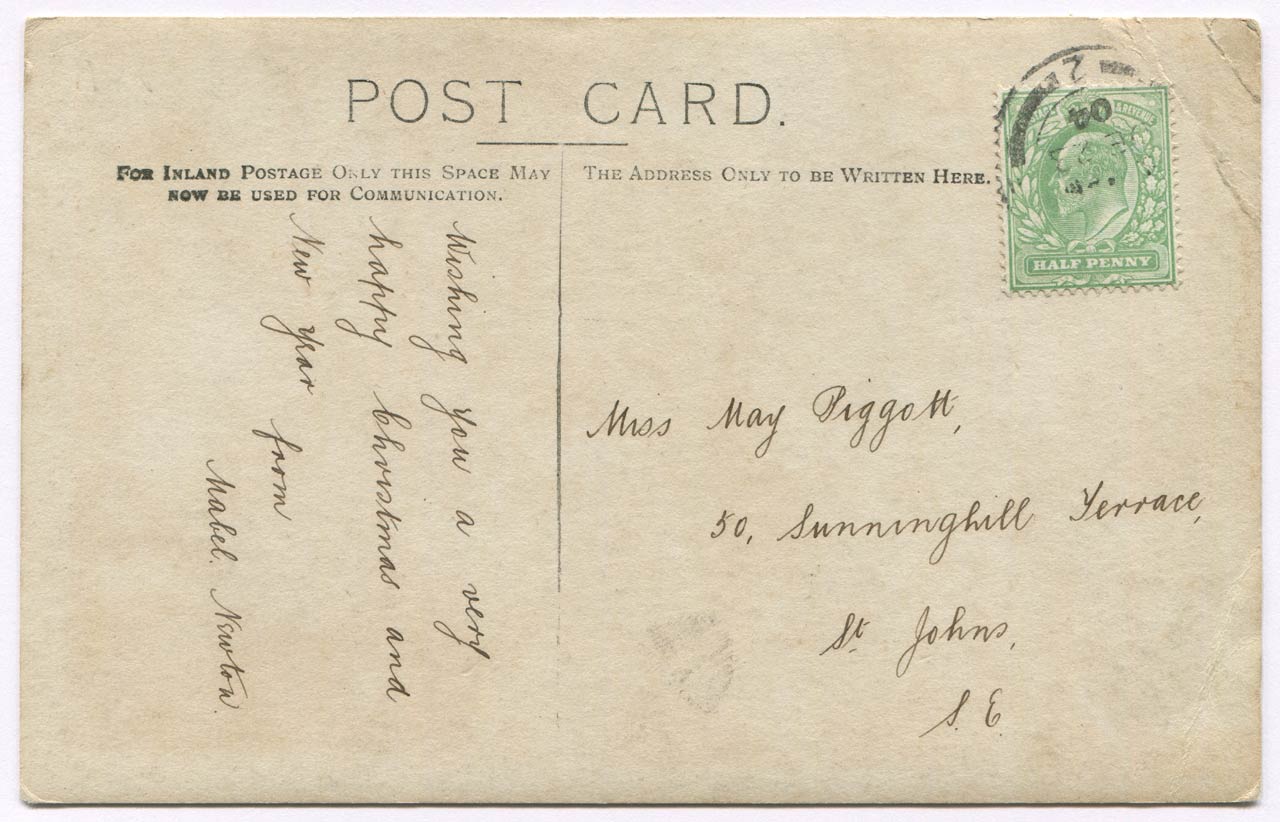 POST CARD.
FOR INLAND POSTAGE ONLY THIS SPACE MAY
NOW BE USED FOR COMMUNICATION.
THE ADDRESS ONLY TO BE WRITTEN HERE.
Wishing you a very
happy Christmas and
New Year from
Mabel. Newton.
04
& REVENUE
HALF PENNY
Miss May Piggott,
50, Sunninghill Terrace,
St Johns,
S. E.